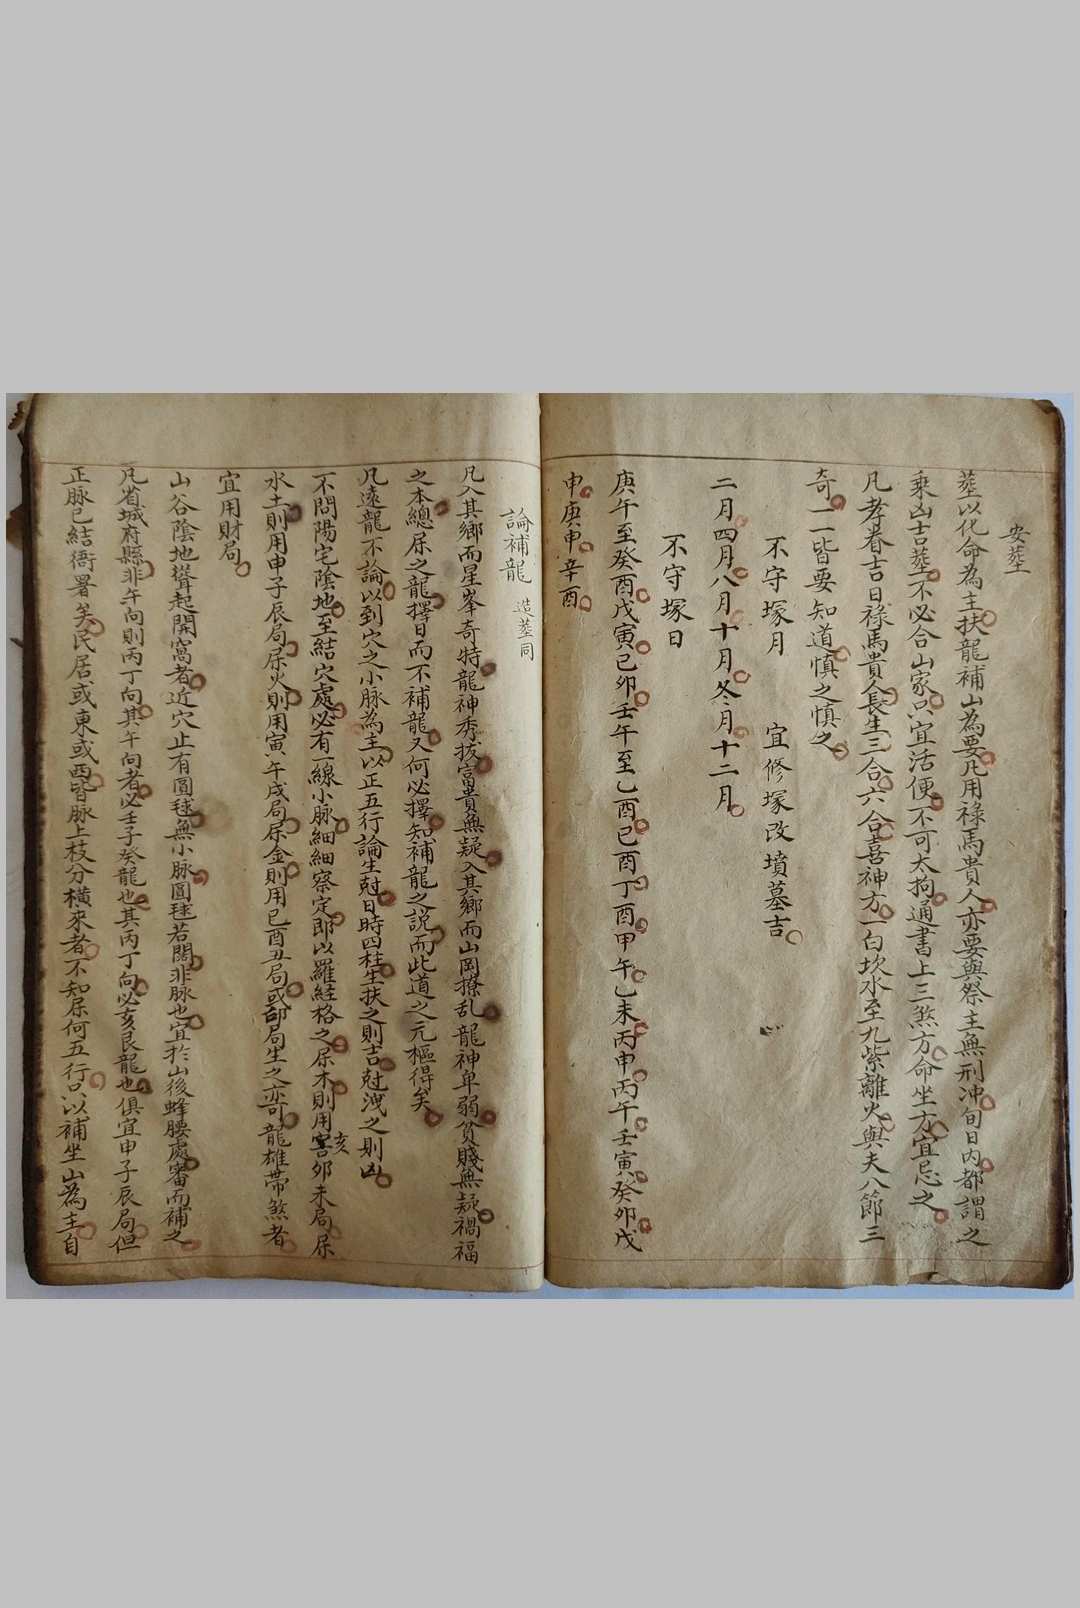 安葬
葬以化命為主扶龍補山為要凡用祿馬貴人亦要與祭主無刑冲旬日內都謂之
乘凶吉葬不必合山家只宜活便不可太拘通書上三煞方命坐方宜忌之
凡孝眷吉日祿馬貴人長生三合六合喜神方一白坎水至九紫離火與夫八節三
奇一一皆要知道慎之慎之
不守塚月 宜修塚改墳墓吉
二月四月八月十月冬月十二月
不守塚日
庚午至癸酉戊寅己卯壬午至乙酉己酉丁酉甲午乙未丙申丙午壬寅癸卯戊
申庚申辛酉
論補龍 造葬同
凡入其鄉而星峯奇特龍神秀拔富貴無疑入其鄉而山岡撩乱龍神卑弱貧賤無疑禍福
之本總屬之龍擇日而不補龍又何必擇知補龍之說而此道之元樞得矣
凡遠龍不論以到穴之小脉為主以正五行論生尅日時四柱生扶之則吉尅洩之則凶
不問陽宅陰地至結穴處必有一線小脉細細察定即以羅経格之屬木則用亥卯未局屬
水土則用申子辰局屬火則用寅午戌局屬金則用巳酉丑局或卽局生之亦可龍雄帶煞者
宜用財局
山谷陰地聳起開窩者近穴止有圓毬無小脉圓毬若闊非脉也宜扵山後蜂腰處審而補之
凡省城府縣非午向則丙丁向其午向者必壬子癸龍也其丙丁向必亥艮龍也俱宜申子辰局但
正脉已結衙署矣民居或東或西皆脉上枝分橫來者不知屬何五行只以補坐山為主自